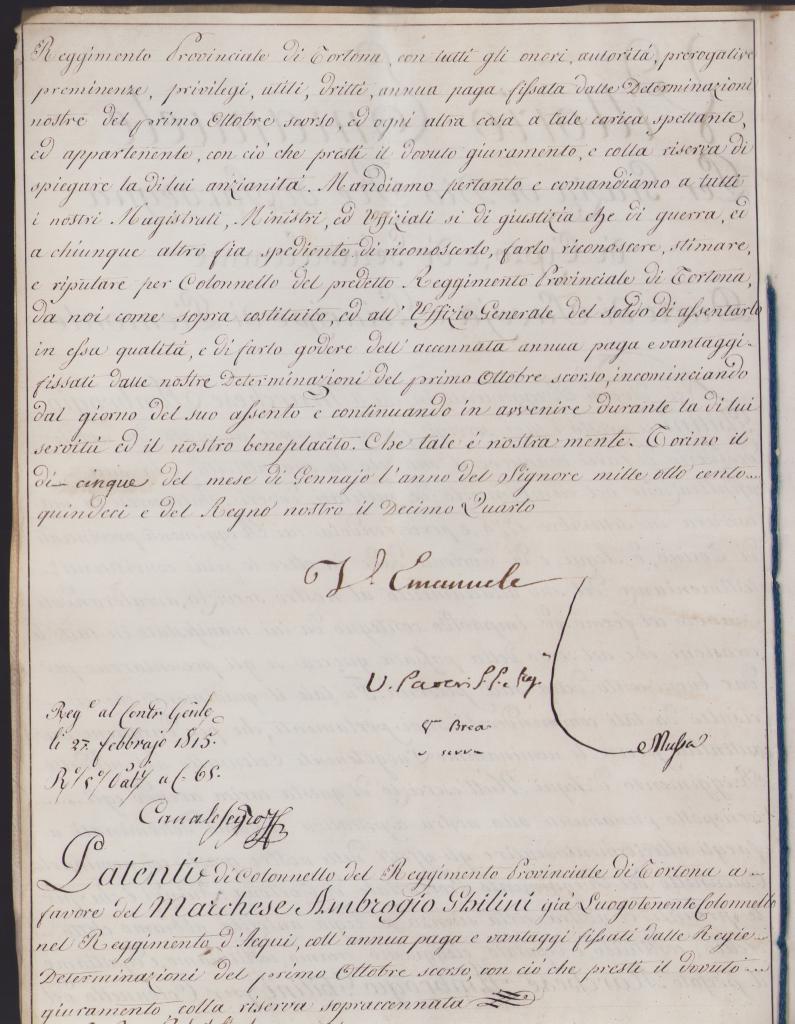 Reggimento Provinciale di Tortona, con tutti gli onori, autoritá, prerogative
preminenze, privilegi, utili, dritti, annua paga fissata dalle Determinazioni
nostre del primo Ottobre scorso, ed ogni altra cosa a tale carica spettante,
ed appartenente, con ció che presti il dovuto giuramento, e colla riserva di
spiegare la di lui anzianitá. Mandiamo pertanto e comandiamo a tutti
i nostri Magistrati, Ministri, ed Uffiziali sì di giustizia che di guerra, ed
a chiunque altro fia spediente di riconoscerlo, farlo riconoscere, stimare,
e riputare per Colonnello del predetto Reggimento Provinciale di Tortona,
da noi come sopra costituito, ed all' Uffizio Generale del soldo di assentarlo
in essa qualitá, e di farlo godere dell' accennata annua paga e vantaggi
fissati dalle nostre Determinazioni del primo Ottobre scorso, incominciando
dal giorno del suo assento e continuando in avvenire durante la di lui
servitù ed il nostro beneplacito. Che tale é nostra mente. Torino il
dì cinque del mese di Gennajo l'anno del Signore mille otto cento
quindeci e del Regno nostro il Decimo Quarto
V. Emanuele
V. Brea
Mussa
Reg.e al Contr. Gen.le
li 27. febbrajo 1815.
Patenti di Colonnello del Reggimento Provinciale di Tortona a
favore del Marchese Ambrogio Ghilini giá Luogotenente Colonnello
nel Reggimento d'Acqui, coll' annua paga e vantaggi fissati dalle Regie
Determinazioni del primo Ottobre scorso, con ció che presti il dovuto
giuramento, colla riserva sopraccennata